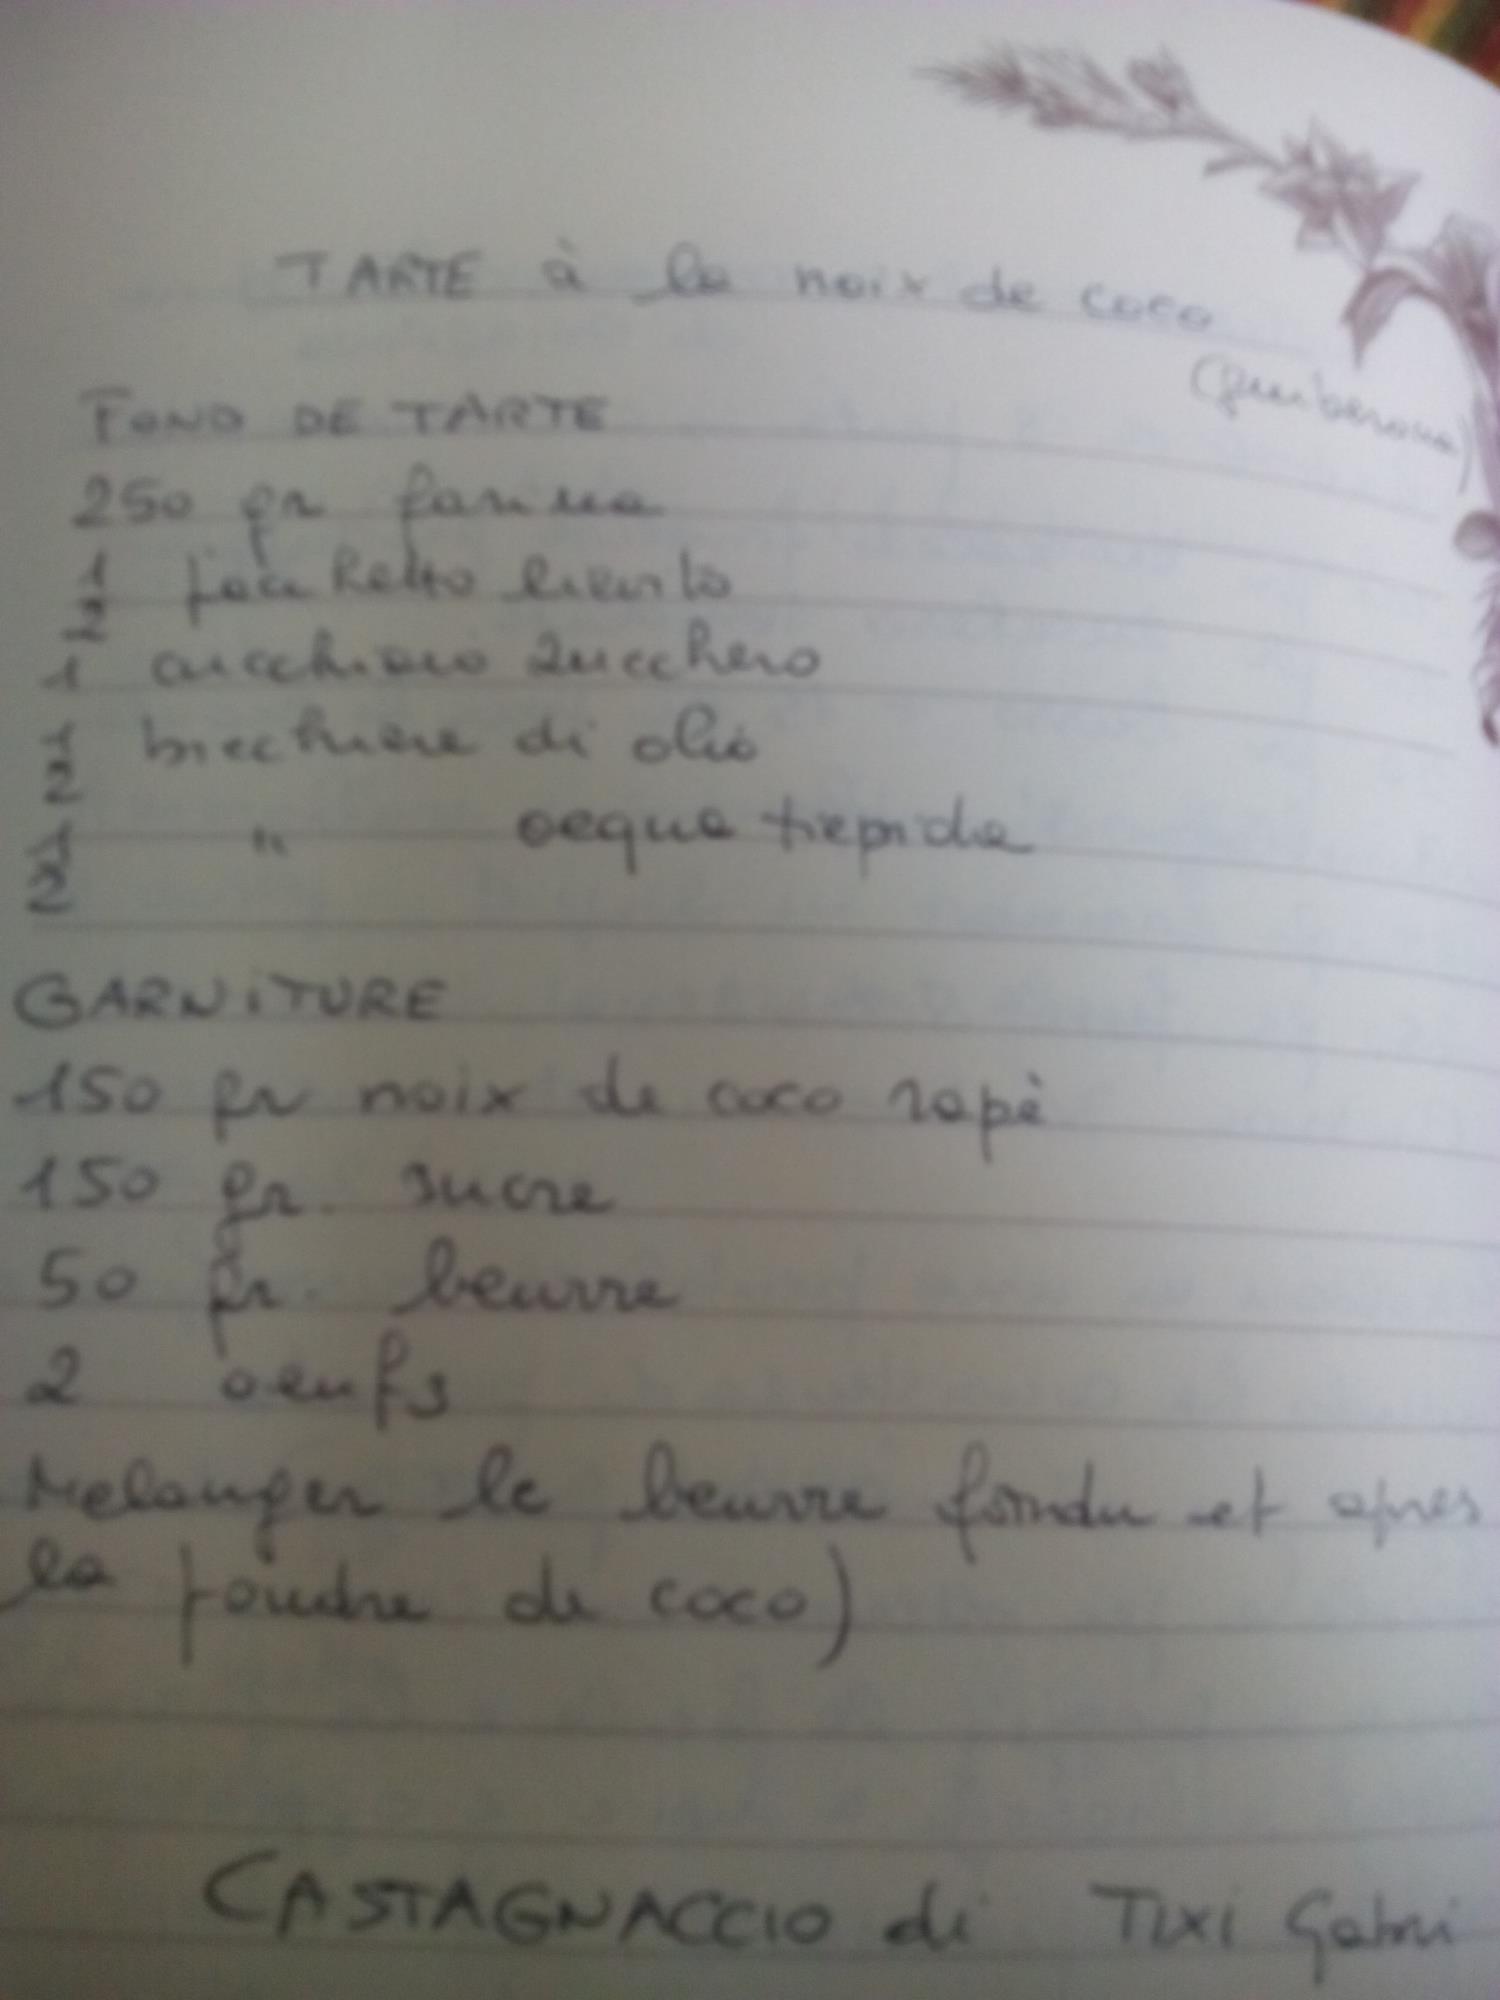 TARTE à la noix de coco
FOND DE TARTE
250 gr farina
1/2 pacchetto lievito
1 cucchiaio zucchero
1/2 bicchiere di olio
1/2 " acqua tiepida
GARNITURE
150 gr noix de coco rapè
150 gr. sucre
50 gr. beurre
2 oeufs
Melanger le beurre fondu et apres
la poudre de coco)
CASTAGNACCIO di Tixi Gabri